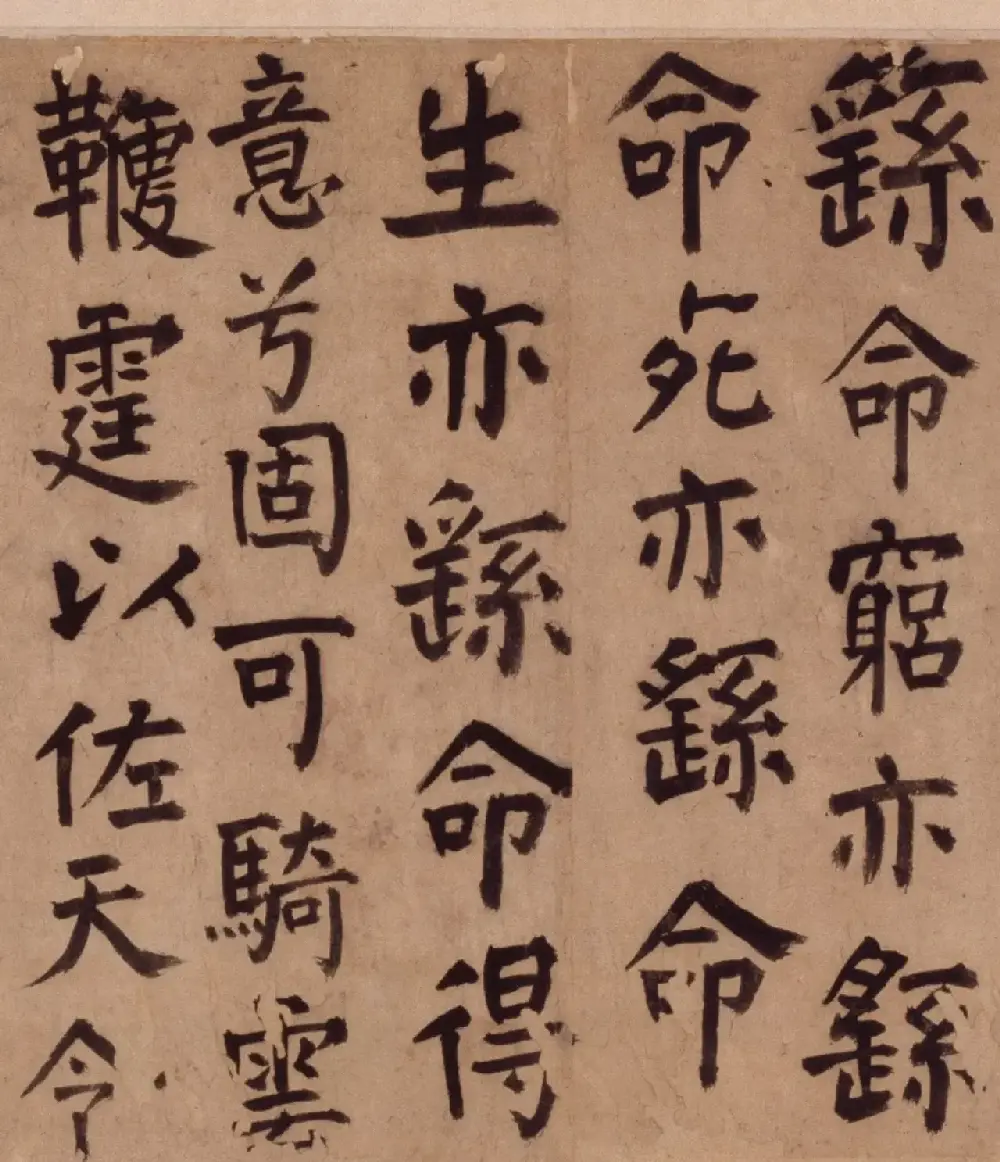 繇命窮亦繇
命死亦繇命
生亦繇命得
意兮固可騎雲
鞭霆以佐天令